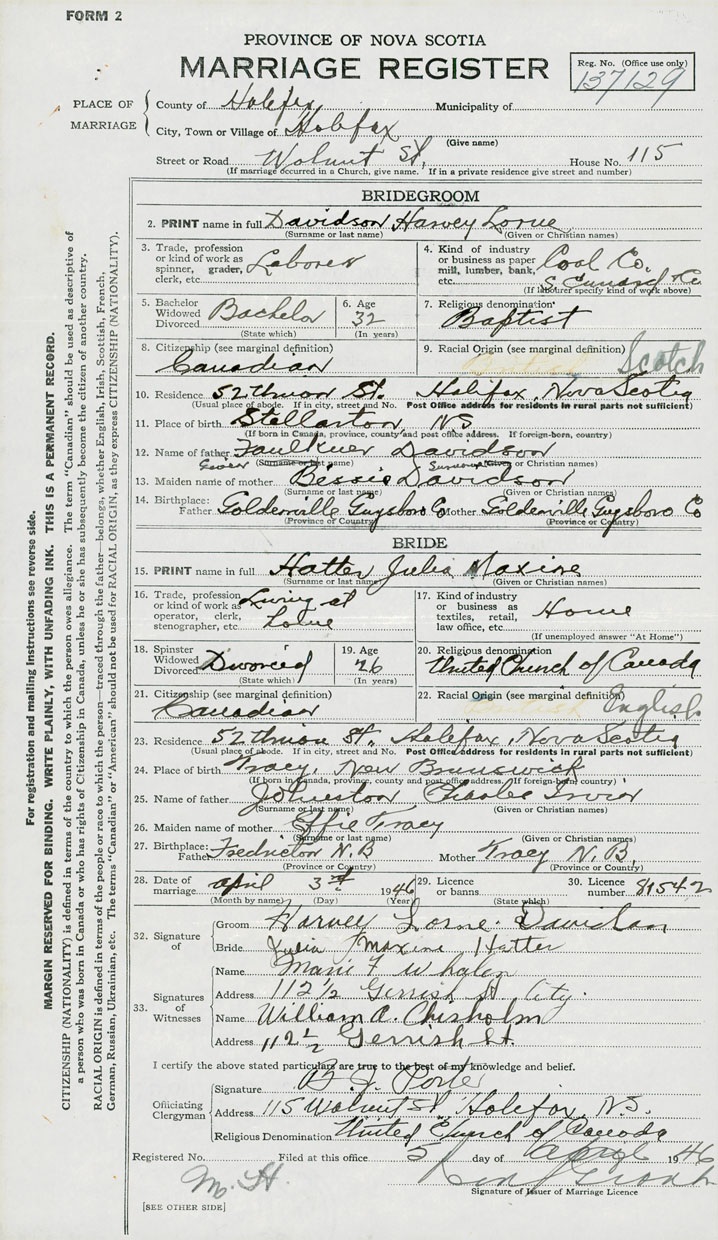 FORM 2
PROVINCE OF NOVA SCOTIA
MARRIAGE REGISTER
Reg. No. (Office use only)
137129
PLACE OF MARRIAGE
County of Halifax Municipality of
City, Town or Village of Halifax
(Give name)
Street or Road Walnut St, House No. 115
(If marriage occurred in a Church, give name. If in a private residence give street and number)
BRIDEGROOM
2. PRINT name in full Davidson Harvey Lorne
(Surname or last name) (Given or Christian names)
3. Trade, profession or kind of work as spinner, grader, clerk, etc. Laborer
4. Kind of industry or business as paper mill, lumber, bank, etc. Coal Co. S. Cunard & Co
(If labourer specify kind of work above)
5. Bachelor Widowed Divorced Bachelor
(State which)
6. Age 32
(In years)
7. Religious denomination Baptist
8. Citizenship (see marginal definition) Canadian
9. Racial Origin (see marginal definition) Scotch
10. Residence 52 Union St. Halifax, Nova Scotia
(Usual place of abode. If in city, street and No. Post Office address for residents in rural parts not sufficient)
11. Place of birth Stellarton, NS
(If born in Canada, province, county and post office address. If foreign-born, country)
12. Name of father Faulkner Davidson
Given (Surname or last name) Surname (Given or Christian names)
13. Maiden name of mother Bessie Davidson
(Surname or last name) (Given or Christian names)
14. Birthplace: Father Goldenville Guysboro Co Mother Goldenville Guysboro Co
(Province or Country) (Province or Country)
BRIDE
15. PRINT name in full Hatter Julia Maxine
(Surname or last name) (Given or Christian names)
16. Trade, profession or kind of work as operator, clerk, stenographer, etc Living at
17. Kind of industry or business as textiles, retail, law office, etc. Home
(If unemployed answer "At Home")
18. Spinster Widowed Divorced Divorced
(State which)
19. Age 26
(In years)
20. Religious denomination United Church of Canada
21. Citizenship (see marginal definition) Canadian
22. Racial Origin (see marginal definition) English
23. Residence 52 Union St., Halifax, Nova Scotia
(Usual place of abode. If in city, street and No. Post Office address for residents in rural parts not sufficient)
24. Place of birth Tracy, New Brunswick
(If born in Canada, province, county and post office address. If foreign-born, country)
25. Name of father Johnston Charles
(Surname or last name) (Given or Christian names)
26. Maiden name of mother Effie Tracy
(Surname or last name) (Given or Christian names)
27. Birthplace: Father Fredricton N.B Mother Tracy N.B.
(Province or Country) (Province or Country)
28. Date of marriage April 3rd 1946
(Month by name) (Day) (Year)
29. Licence or banns
(State which)
30. Licence number 81542
32. Signature of
Groom Harvey Lorne Davidson
Bride Julia Maxine Hatter
33. Signatures of Witnesses
Name Marie F Whalen
Address 112 1/2 Gerrish St City
Name William A. Chisholm
Address 112 1/2 Gerrish St.
I certify the above stated particulars are true to the best of my knowledge and belief.
Officiating Clergyman
Signature B. J. Porter
Address 115 Walnut St, Halifax, N.S.
Religious Denomination United Church of Canada
Registered No. Filed at this office 5 day of April 1946
M. H.
Signature of Issuer of Marriage Licence
[SEE OTHER SIDE]
For registration and mailing instructions see reverse side.
MARGIN RESERVED FOR BINDING. WRITE PLAINLY, WITH UNFADING INK. THIS IS A PERMANENT RECORD.
CITIZENSHIP (NATIONALITY) is defined in terms of the country to which the person owes allegiance. The term "Canadian" should be used as descriptive of
a person who was born in Canada or who has rights of Citizenship in Canada, unless he or she has subsequently become the citizen of another country.
RACIAL ORIGIN is defined in terms of the people or race to which the person—traced through the father—belongs, whether English, Irish, Scottish, French,
German, Russian, Ukrainian, etc. The terms "Canadian" or "American" should not be used for RACIAL ORIGIN, as they express CITIZENSHIP (NATIONALITY).